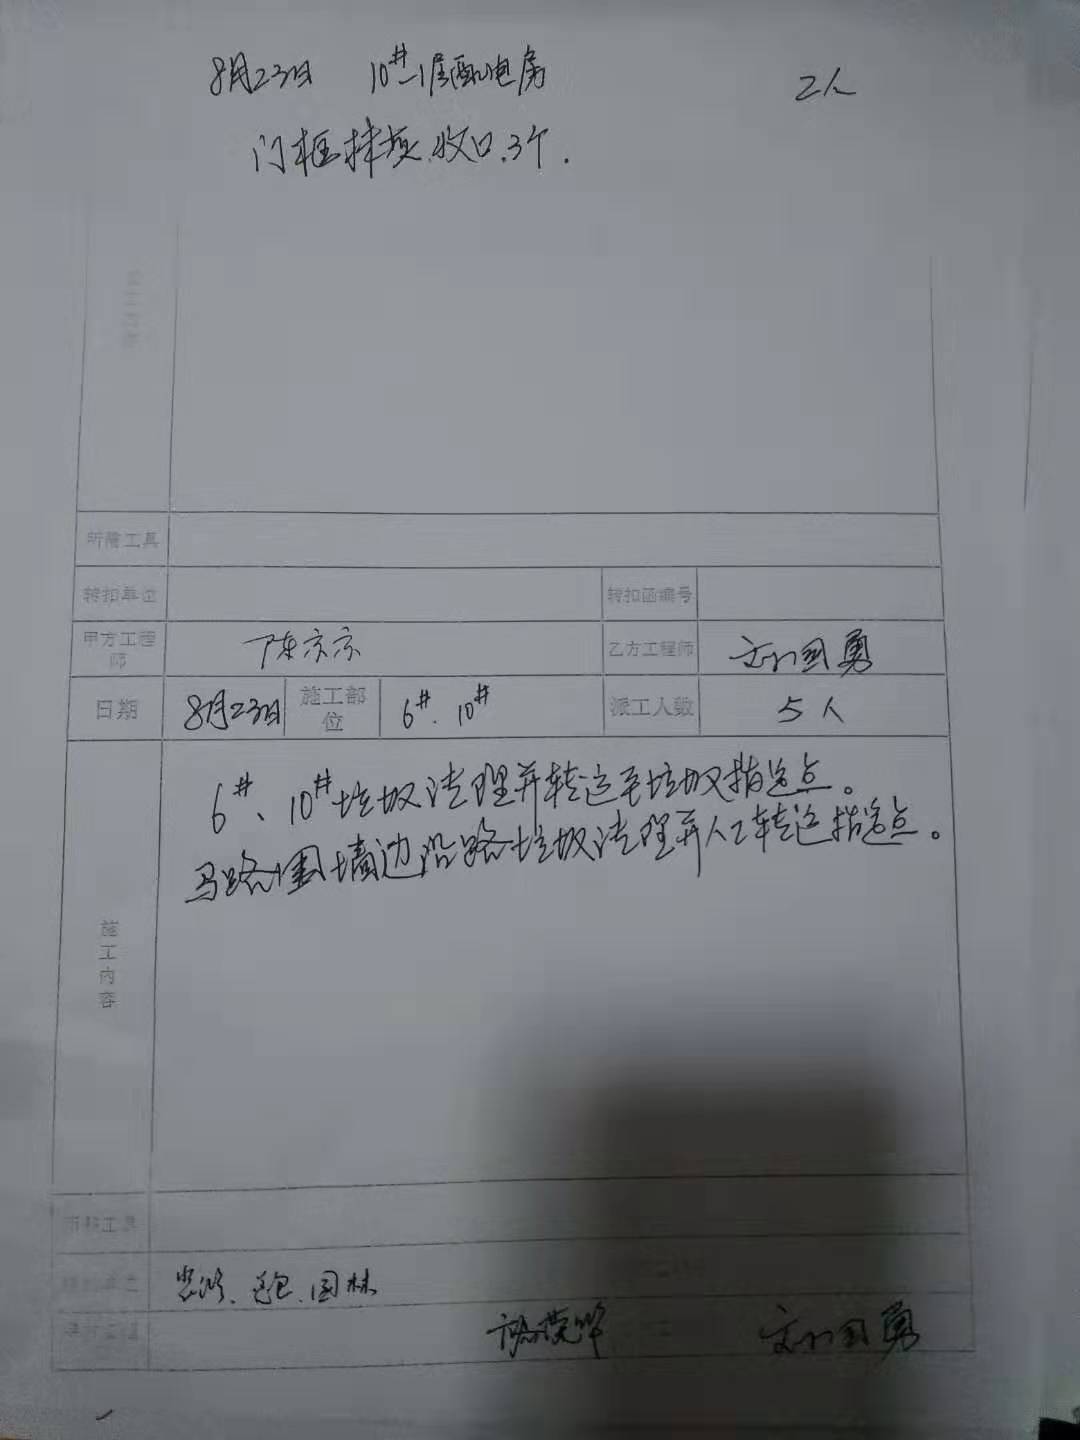 8月23日 10#-1层配电房 2人
门框抹灰.收口.3个.
所需工具
转扣单位 转扣函编号
甲方工程师 陈京京 乙方工程师 刘国勇
日期 8月23日 施工部位 6#、10# 派工人数 5人
施工内容
6#、10#垃圾清理并转运至垃圾指定点。
马路围墙边沿路垃圾清理并人工转运指定点。
所需工具
园林
刘国勇